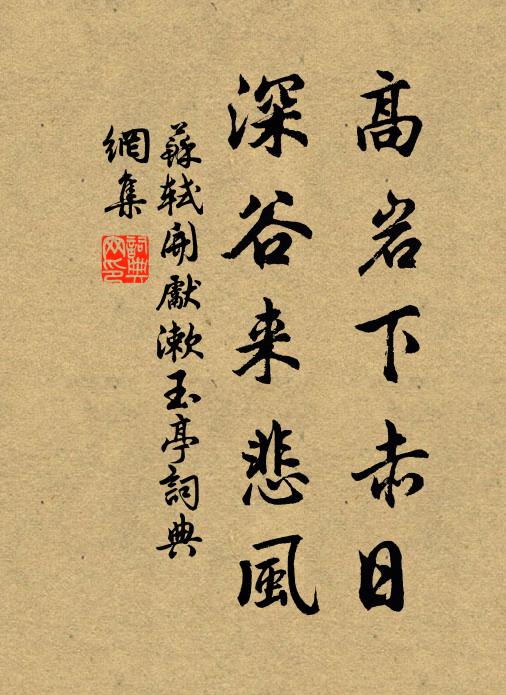 高岩下赤日
深谷来悲風
蘇軾開獻漱玉亭詞典
網集
詞典
网印